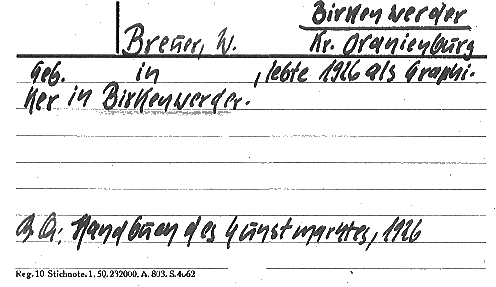 Birkenwerder
Breuer, W. Kr. Oranienburg
Geb. in , lebte 1926 als Graphi-
ker in Birkenwerder.
Handbuch des Kunstmarktes, 1926
Reg. 10 Stichnote. 1. 50. 232000. A. 803. S. 4062